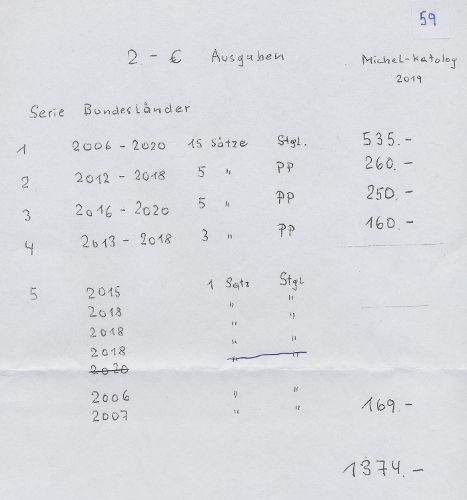 59
2.- € Ausgaben Michel-Katalog
2019
Serie Bundesländer
1 2006 - 2020 15 Sätze Stgl. 535.-
2 2012 - 2018 5 " PP 260.-
3 2016 - 2020 5 " PP 250.-
4 2013 - 2018 3 " PP 160.-
5 2015 1 Satz Stgl
2018 " "
2018 " "
2018 " "
2020
2006 " "
2007 " " 169.-
1374.-